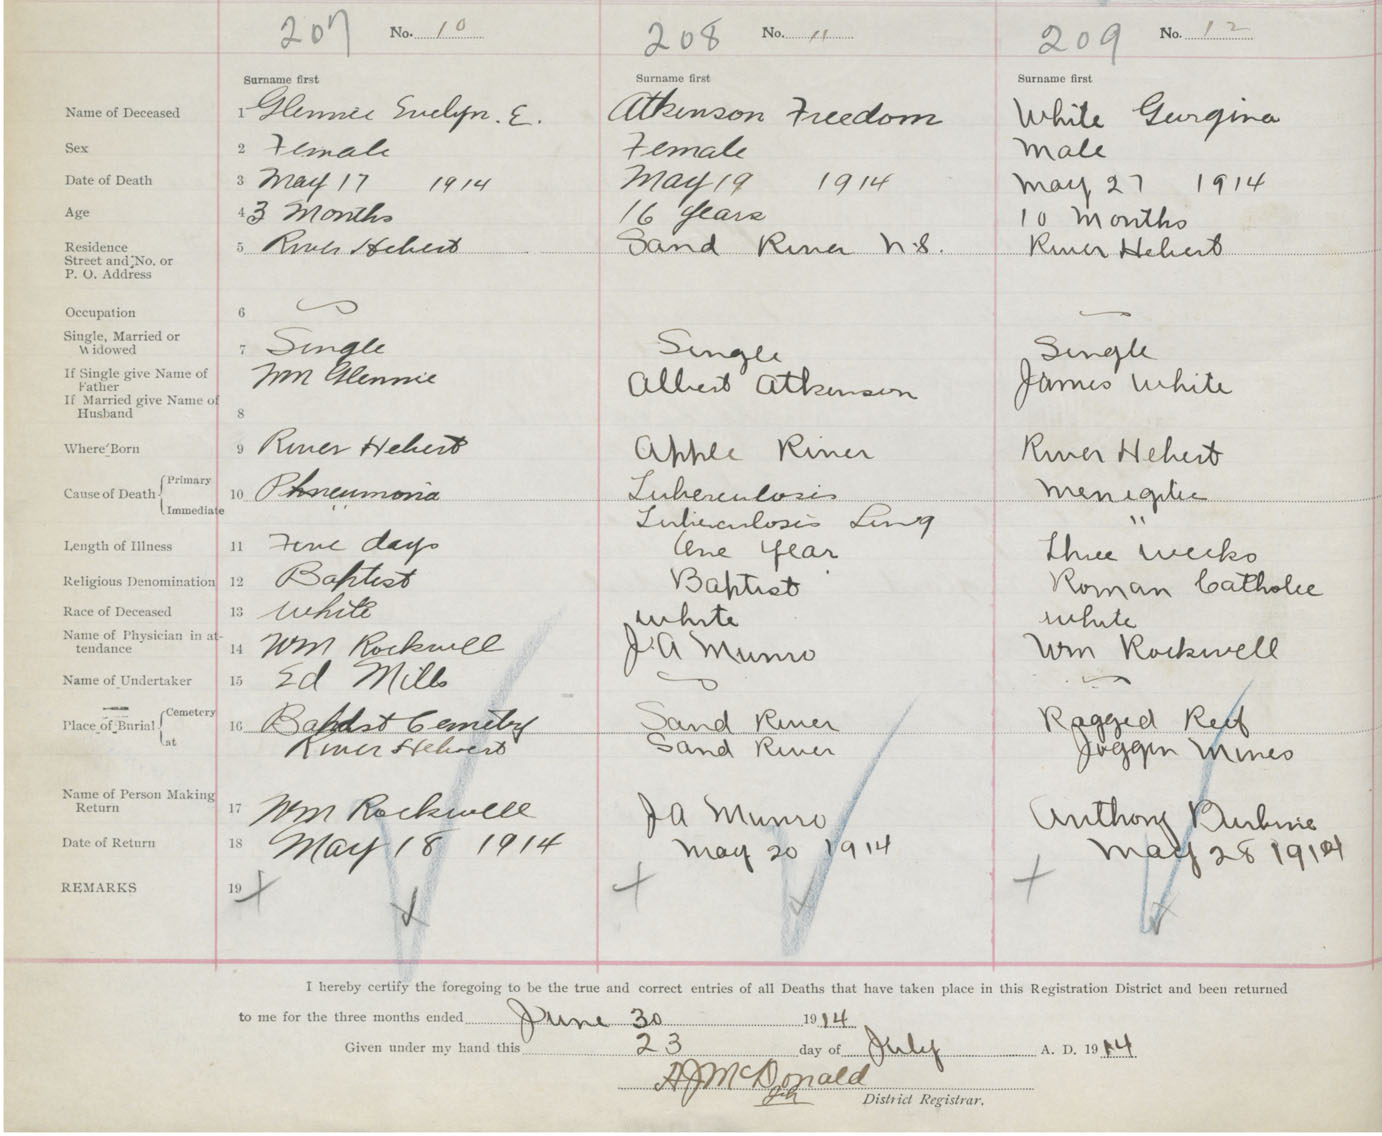 207 No. 10 208 No. 11 209 No. 12
Surname first Surname first Surname first
Name of Deceased 1 Glennie Evelyn. E. Atkinson Freedom White Georgina
Sex 2 Female Female Male
Date of Death 3 May 17 1914 May 19 1914 May 27 1914
Age 4 3 Months 16 Years 10 Months
Residence 5 River Hebert Sand River N.S. River Hebert
Street and No. or
P. O. Address
Occupation 6
Single, Married or
Widowed 7 Single Single Single
If Single give Name of
Father Wm Glennie Albert Atkinson James White
If Married give Name of
Husband 8
Where Born 9 River Hebert Apple River River Hebert
Cause of Death Primary 10 Phneumonia Tuberculosis
Immediate " Tuberculosis Lung "
Length of Illness 11 Five days One Year Three weeks
Religious Denomination 12 Baptist Baptist Roman Catholic
Race of Deceased 13 White White White
Name of Physician in at-
tendance 14 Wm Rockwell J.A Munro Wm Rockwell
Name of Undertaker 15 Ed Mills
Place of Burial Cemetery 16 Baptist Cemetry Sand River Ragged Reef
at River Hebert Sand River Joggin Mines
Name of Person Making
Return 17 Wm Rockwell J A Munro Anthony Burbine
Date of Return 18 May 18 1914 May 20 1914 May 28 1914
REMARKS 19 + + +
x x x
I hereby certify the foregoing to be the true and correct entries of all Deaths that have taken place in this Registration District and been returned
to me for the three months ended June 30 1914
Given under my hand this 23 day of July A. D. 1914
McDonald
District Registrar.